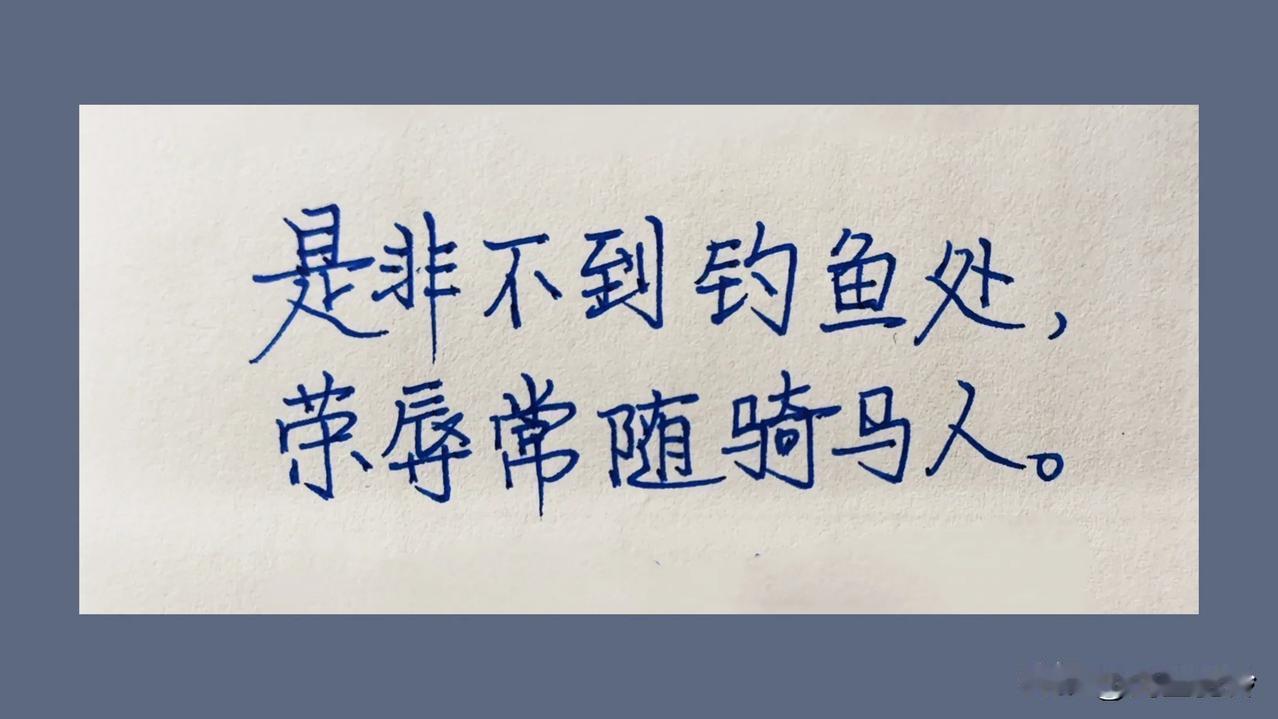 是非不到钓鱼处，
荣辱常随骑马人。